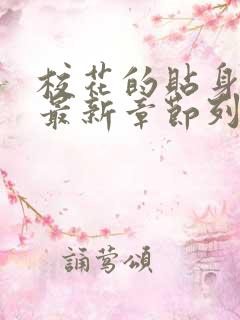 校花的貼身
最新章節列
誦莺頌